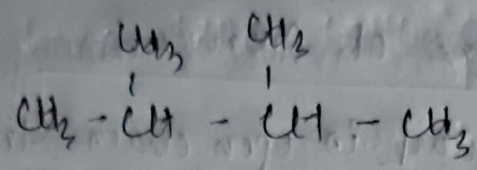 CH3 CH3
CH3 - CH - CH - CH3